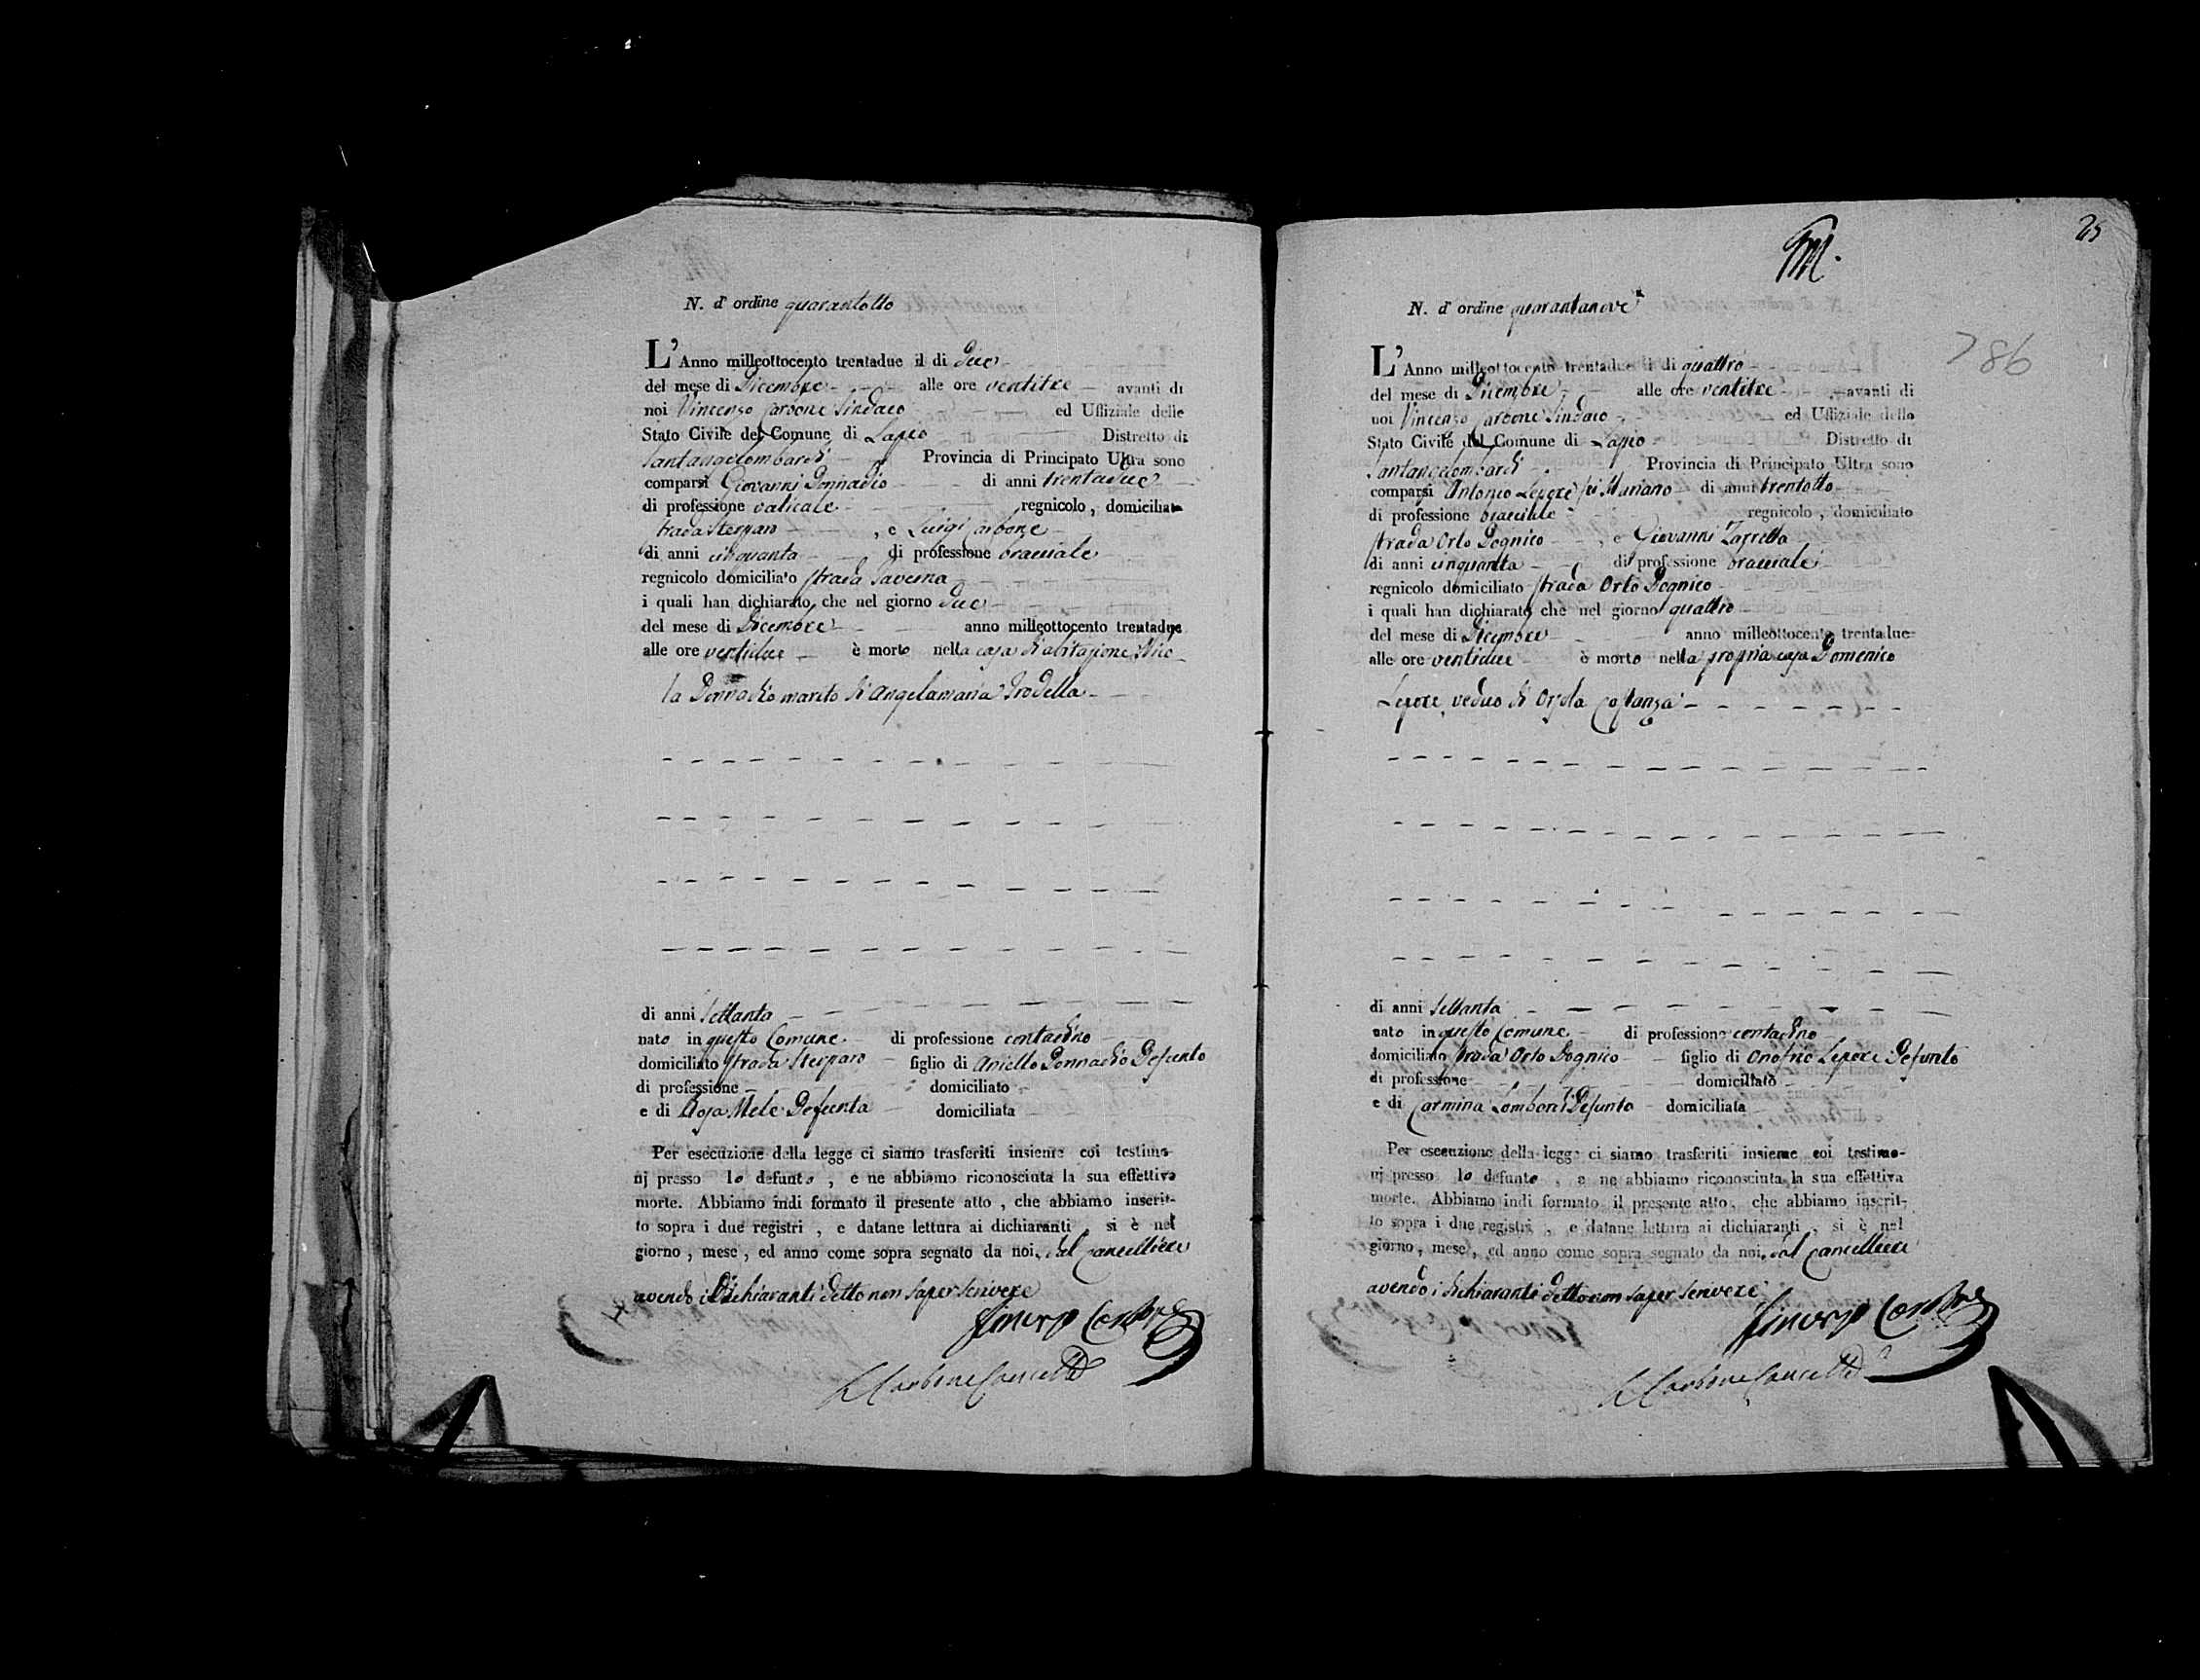 N. d' ordine quarantotto
L'Anno milleottocento trentadue il di due
del mese di Dicembre alle ore ventitre avanti di
noi Vincenzo Carbone Sindaco ed Uffiziale delle
Stato Civile del Comune di Lapio Distretto di
Santangelombardi Provincia di Principato Ultra sono
comparsi Giovanni Donnadio di anni trentadue
di professione vaticale regnicolo, domiciliato
strada Sterparo, e Luigi Carbone
di anni cinquanta di professione bracciale
regnicolo domiciliato strada Taverna
i quali han dichiarato che nel giorno due
del mese di Dicembre anno milleottocento trentadue
alle ore ventidue è morto nella casa di abitazione Nico
la Donnadio marito di Angelamaria Trodella
di anni Settanta
nato in questo Comune di professione contadino
domiciliato strada Sterparo figlio di Aniello Donnadio Defunto
di professione domiciliato
e di Rosa Mele Defunta domiciliata
Per esecuzione della legge ci siamo trasferiti insieme coi testimo-
nj presso lo defunto, e ne abbiamo riconosciuta la sua effettiva
morte. Abbiamo indi formato il presente atto, che abbiamo inserit-
to sopra i due registri, e datane lettura ai dichiaranti, si è nel
giorno, mese, ed anno come sopra segnato da noi, dal Cancelliere
avendo i Dichiaranti detto non saper scrivere
Vincenzo Carbone
Carbone Cancell
25
N. d' ordine quarantanove
786
L'Anno milleottocento trentadue il di quattro
del mese di Dicembre alle ore ventitre avanti di
noi Vincenzo Carbone Sindaco ed Uffiziale dello
Stato Civile del Comune di Lapio Distretto di
Santangelombardi Provincia di Principato Ultra sono
comparsi Antonio Lepore fu Mariano di anni trentotto
di professione bracciale regnicolo, domiciliato
strada Orto Dognico, e Giovanni Zarrella
di anni cinquanta di professione bracciale
regnicolo domiciliato strada Orto Dognico
i quali han dichiarato che nel giorno quattro
del mese di Dicembre anno milleottocento trentadue
alle ore ventidue è morto nella propria casa Domenico
Lepore, veduo di Orsola Costanza
di anni Settanta
nato in questo Comune di professione contadino
domiciliato strada Orto Dognico figlio di Onofrio Lepore Defunto
di professione domiciliato
e di Carmina Lombardi Defunta domiciliata
Per esecuzione della legge ci siamo trasferiti insieme coi testimo-
nj presso lo defunto, e ne abbiamo riconosciuta la sua effettiva
morte. Abbiamo indi formato il presente atto, che abbiamo inscrit-
to sopra i due registri, e datane lettura ai dichiaranti, si è nel
giorno, mese, ed anno come sopra segnato da noi, dal Cancelliere
avendo i Dichiaranti detto non saper scrivere
Vincenzo Carbone
Carbone Cancell